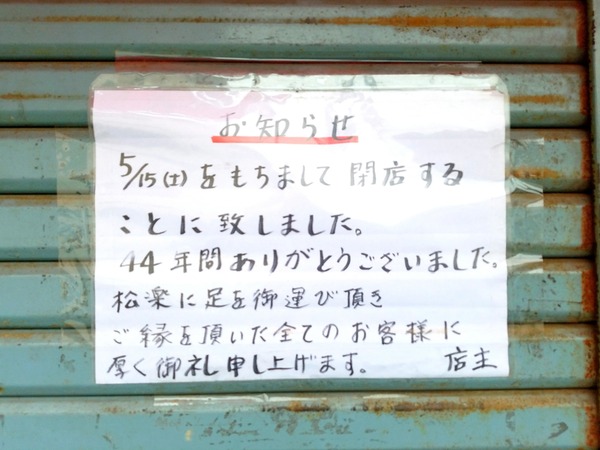 お知らせ
5/15(土)をもちまして閉店する
ことに致しました。
44年間ありがとうございました。
松楽に足を御運び頂き
ご縁を頂いた全てのお客様に
厚く御礼申し上げます。 店主